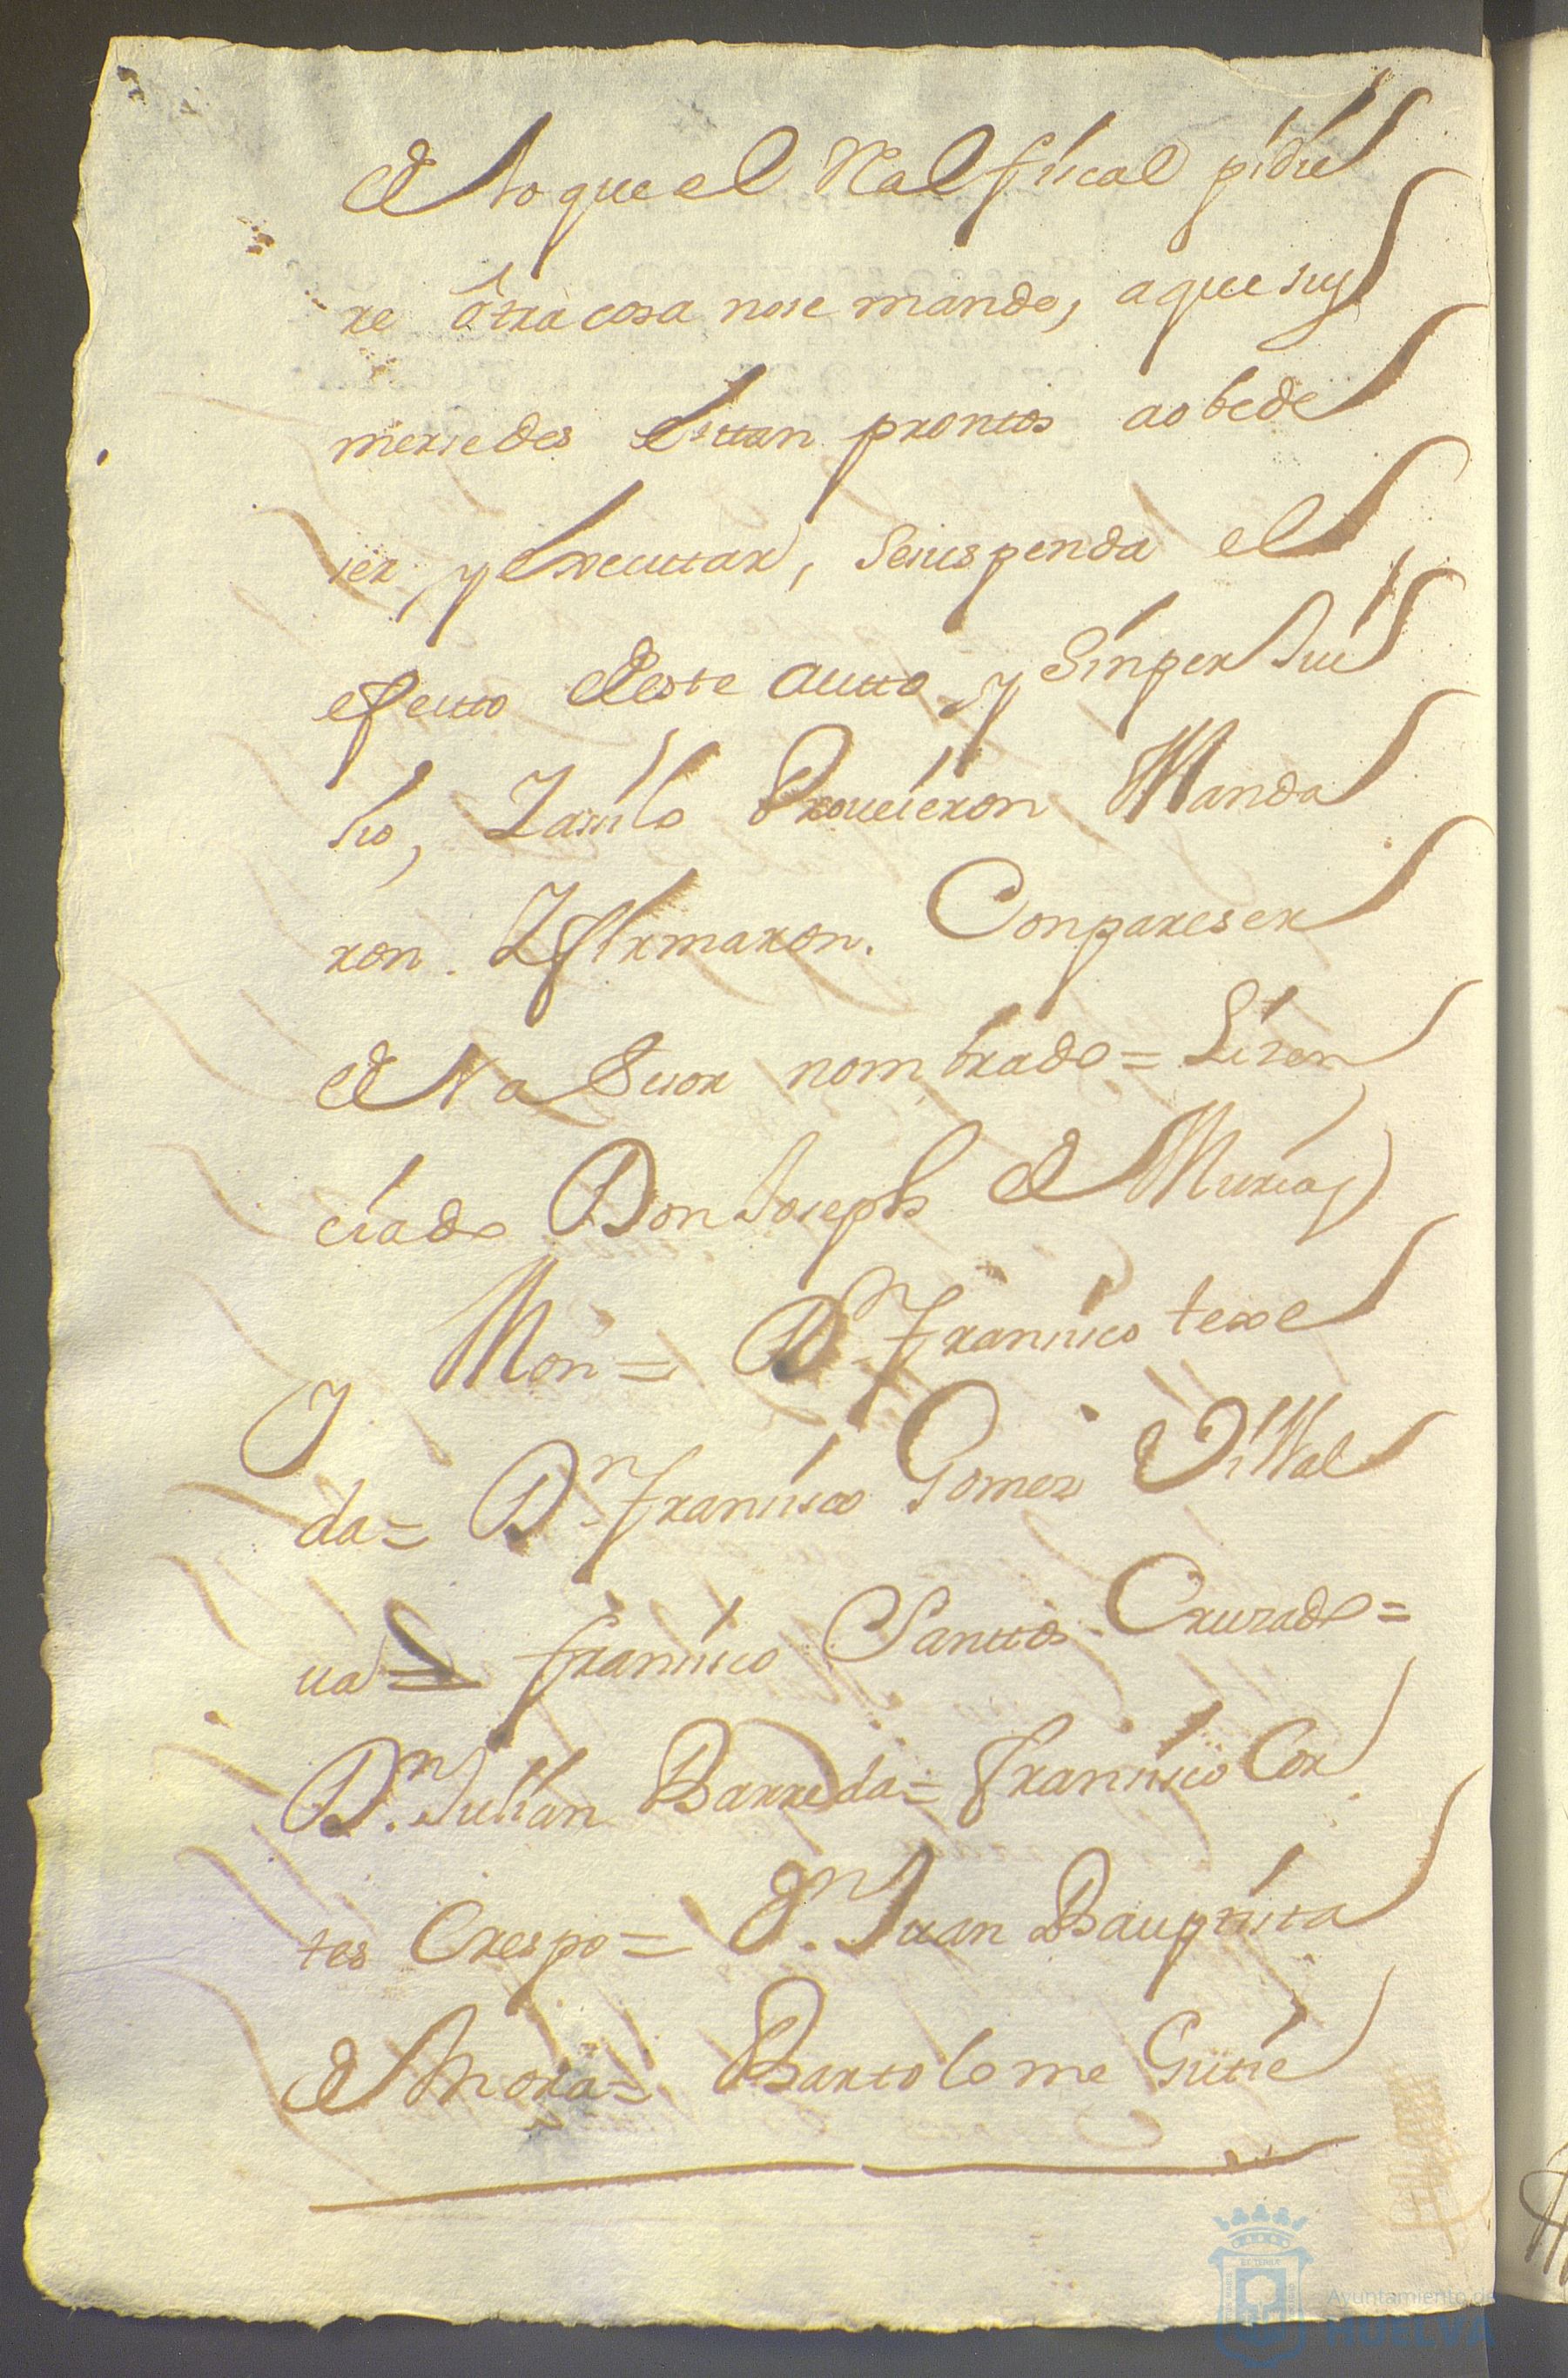 de lo que el Real fiscal pidie
re otra cosa nose mande, aque sus
mersedes estan prontos aobede
ser, y executar, sesuspenda el
efecto deste autto, y sinper Jui
sio, Yasilo Proveieron Manda
ron. Yfirmaron. Conpareser
del asesor nombrado = Lizen
ciado Don Joseph de Murias
y Mon = Dn. Fransisco texe
da = Dn. Fransisco Gomez Villal
ua = Fransisco Santtos Cruzado =
Dn. Julian Barreda = Fransisco Cor
tes Crespo = Dn. Juan Bauptista
de Mora = Bartolome Gutie
Ayuntamiento de
HUELVA